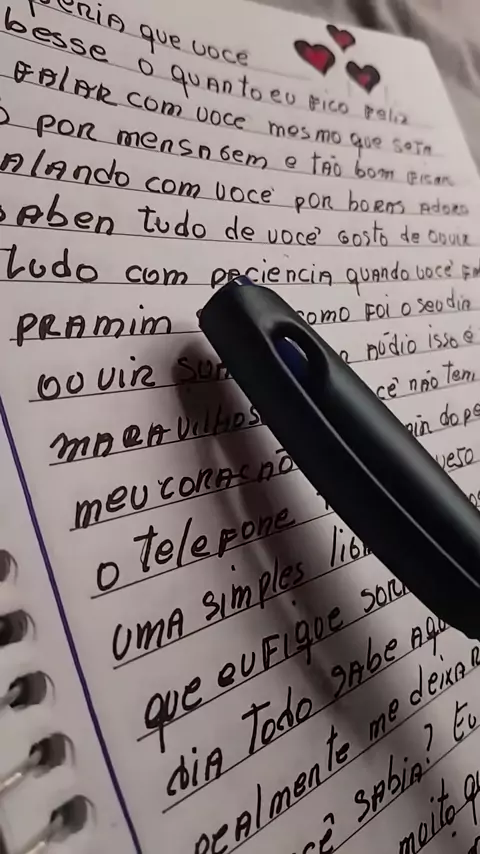 que você
besse o quanto eu fico feliz
falar com você mesmo que seja
por mensagem e tão bom ficar
alando com você por horas Adoro
saben tudo de você gosto de ouvir
tudo com paciencia quando você
pramim como foi o seu dia
oouvir audio isso é
maravilhos cê não tem
meu coração
o telefone
uma simples
que eu fique
dia todo sabe
realmente me deixa
cê sabia? Eu
muito